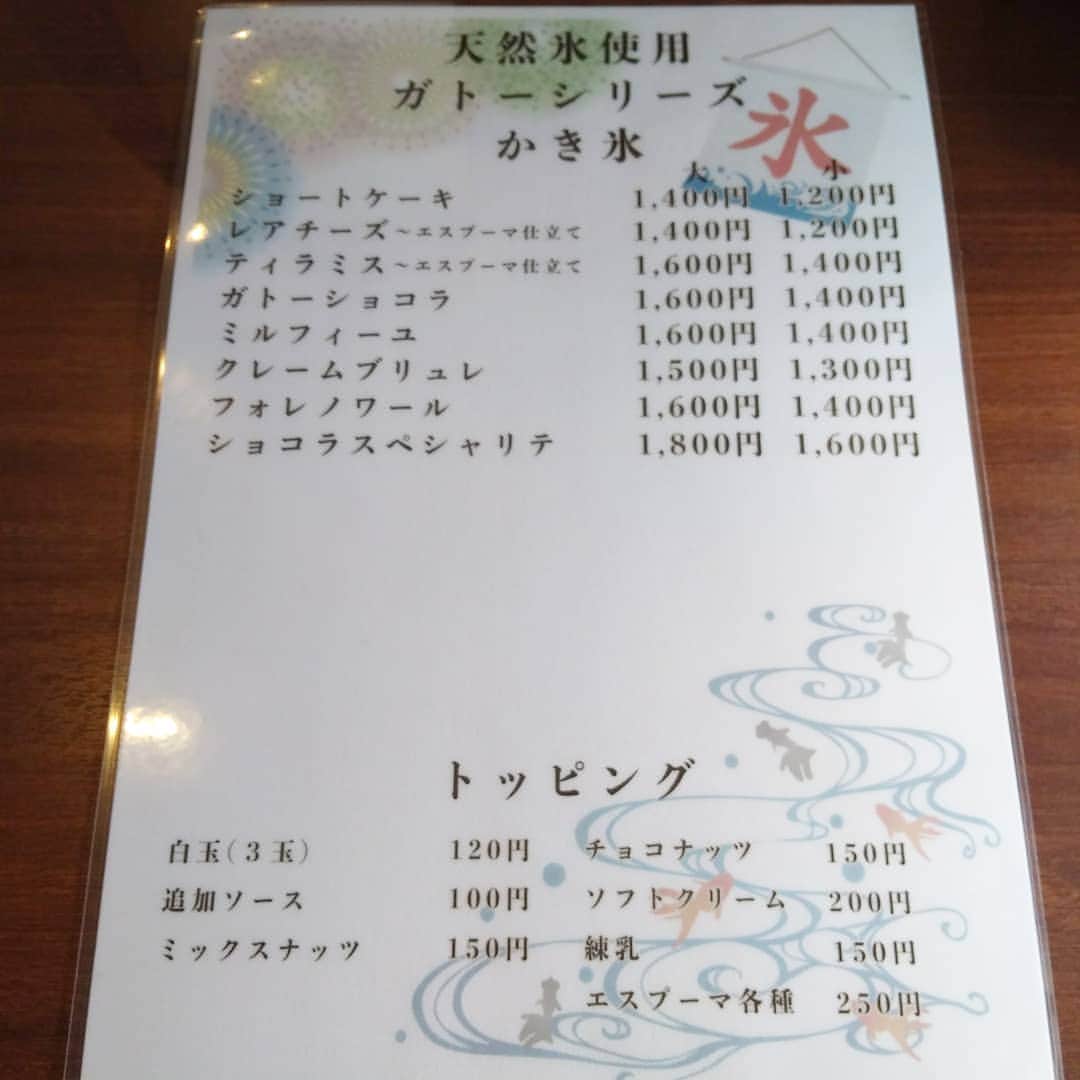 天然氷使用
ガトーシリーズ
かき氷
氷
大 小
ショートケーキ 1,400円 1,200円
レアチーズ～エスプーマ仕立て 1,400円 1,200円
ティラミス～エスプーマ仕立て 1,600円 1,400円
ガトーショコラ 1,600円 1,400円
ミルフィーユ 1,600円 1,400円
クレームブリュレ 1,500円 1,300円
フォレノワール 1,600円 1,400円
ショコラスペシャリテ 1,800円 1,600円
トッピング
白玉(3玉) 120円 チョコナッツ 150円
追加ソース 100円 ソフトクリーム 200円
ミックスナッツ 150円 練乳 150円
エスプーマ各種 250円